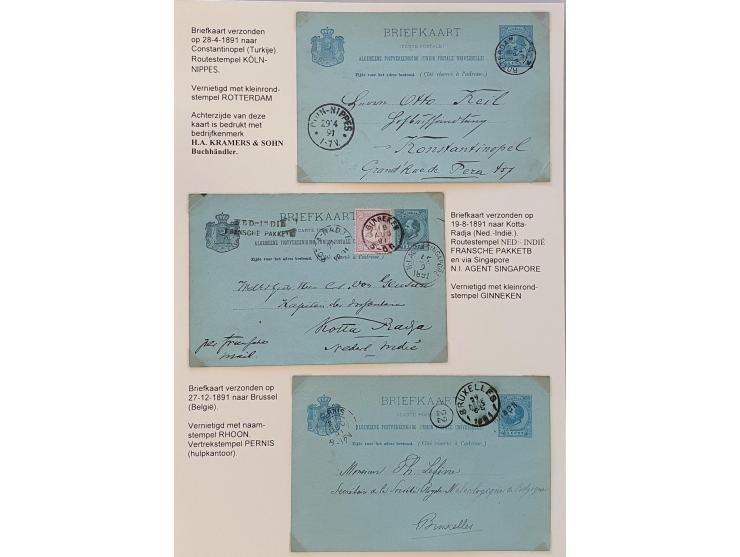 Briefkaart verzonden
op 28-4-1891 naar
Constantinopel (Turkije).
Routestempel KÖLN-
NIPPES.
Vernietigd met kleinrond-
stempel ROTTERDAM
Achterzijde van deze
kaart is bedrukt met
bedrijfkenmerk
H.A. KRAMERS & SOHN
Buchhändler.
BRIEFKAART
(CARTE POSTALE)
ALGEMEENE POSTVEREENIGING (UNION POSTALE UNIVERSELLE)
Zijde voor het adres bestemd. (Côté réservé à l'adresse)
ROTTERDAM
Herrn Otto Keil
Hofbuchhandlung
Konstantinopel
Grand Rue de Pera 457
CÖLN-NIPPES
29 4
91
1-7N.
NED-INDIE
FRANSCHE PAKKET
BRIEFKAART
GINNEKEN
19
AUG
91
SINGAPORE
Zijde voor het adres
Kapitein der Infanterie
Kotta Radja
Nederl Indië
per Fransche
mail.
Briefkaart verzonden op
19-8-1891 naar Kotta-
Radja (Ned.-Indië.).
Routestempel NED:- INDIË
FRANSCHE PAKKETB
en via Singapore
N.I. AGENT SINGAPORE
Vernietigd met kleinrond-
stempel GINNEKEN
Briefkaart verzonden op
27-12-1891 naar Brussel
(België).
Vernietigd met naam-
stempel RHOON.
Vertrekstempel PERNIS
(hulpkantoor).
BRIEFKAART
ALGEMEENE POSTVEREENIGING (UNION POSTALE UNIVERSELLE)
Zijde voor het adres bestemd. (Côté réservé à l'adresse)
22
BRUXELLES
Monsieur Th. Lefèvre
Secrétaire de la Société Royale Malacologique de Belgique
Bruxelles